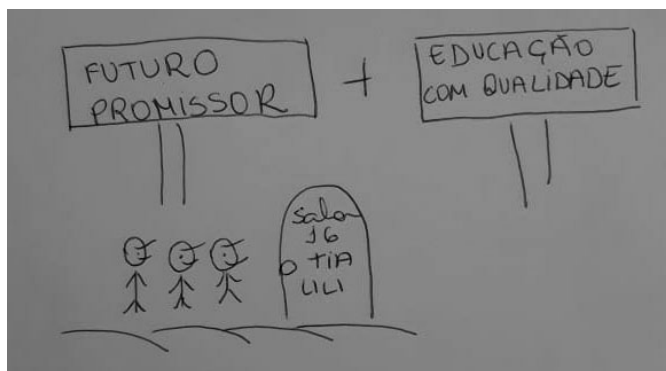 FUTURO
PROMISSOR
+
EDUCAÇÃO
COM QUALIDADE
Sala
16
TIA
LILI